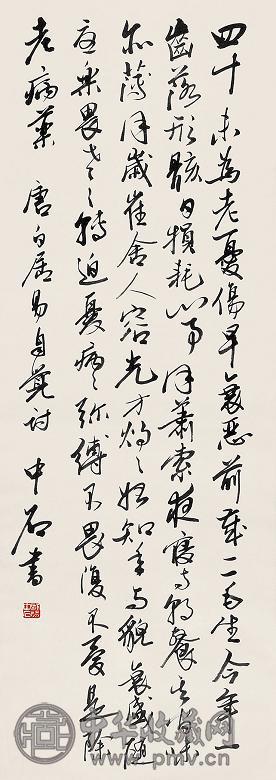 四十未為老憂傷早衰惡前歲二毛生今年一
齒落形骸日損耗心事同蕭索夜寢与朝餐其間味
亦薄同歲崔舍人容光方灼々始知年与貌衰盛隨
憂樂畏老々轉迫憂病々彌縛不畏復不憂是除
老病藥 唐白居易自覺詩 中石書
中华收藏网
www.pmv.cn